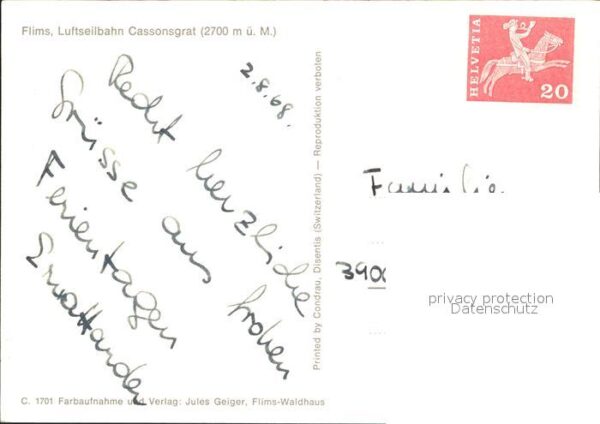 Flims, Luftseilbahn Cassonsgrat (2700 m ü. M.)
2.8.68.
Recht herzliche
Grüsse aus frohen
Ferientagen
HELVETIA
20
Familie
3900
privacy protection
Datenschutz
Printed by Condrau, Disentis (Switzerland) — Reproduktion verboten
C. 1701 Farbaufnahme und Verlag: Jules Geiger, Flims-Waldhaus